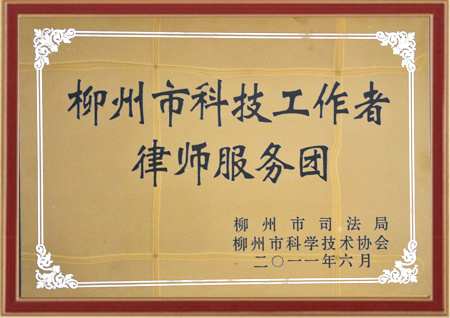 柳州市科技工作者
律师服务团
柳州市司法局
柳州市科学技术协会
二〇一一年六月